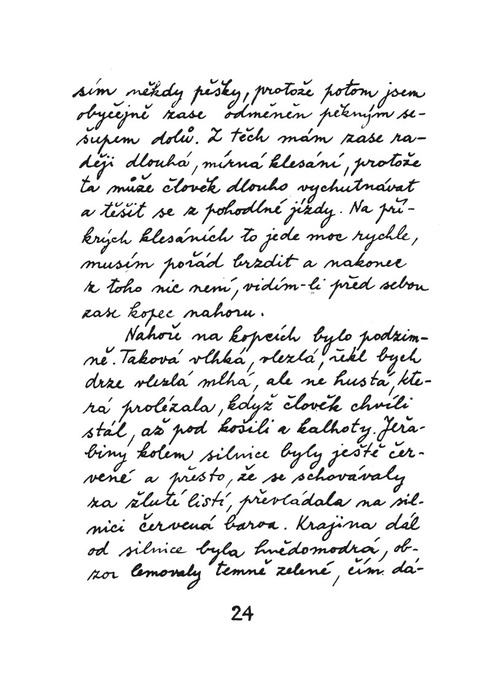 sím někdy pěšky, protože potom jsem
obyčejně zase odměněn pěkným se-
šupem dolů. Z těch mám zase ra-
ději dlouhá, mírná klesání, protože
ta může člověk dlouho vychutnávat
a těšit se z pohodlné jízdy. Na pří-
krých klesáních to jede moc rychle,
musím pořád brzdit a nakonec
z toho nic není, vidím-li před sebou
zase kopec nahoru.
Nahoře na kopcích bylo podzim-
ně. Taková vlhká, vlezlá, řekl bych
drze vlezlá mlha, ale ne hustá, kte-
rá prolézala, když člověk chvíli
stál, až pod košili a kalhoty. Jeřa-
biny kolem silnice byly ještě čer-
vené a přesto, že se schovávaly
za žluté listí, převládala na sil-
nici červená barva. Krajina dál
od silnice byla hnědomodrá, ob-
zor lemovaly temně zelené, čím dá-
24